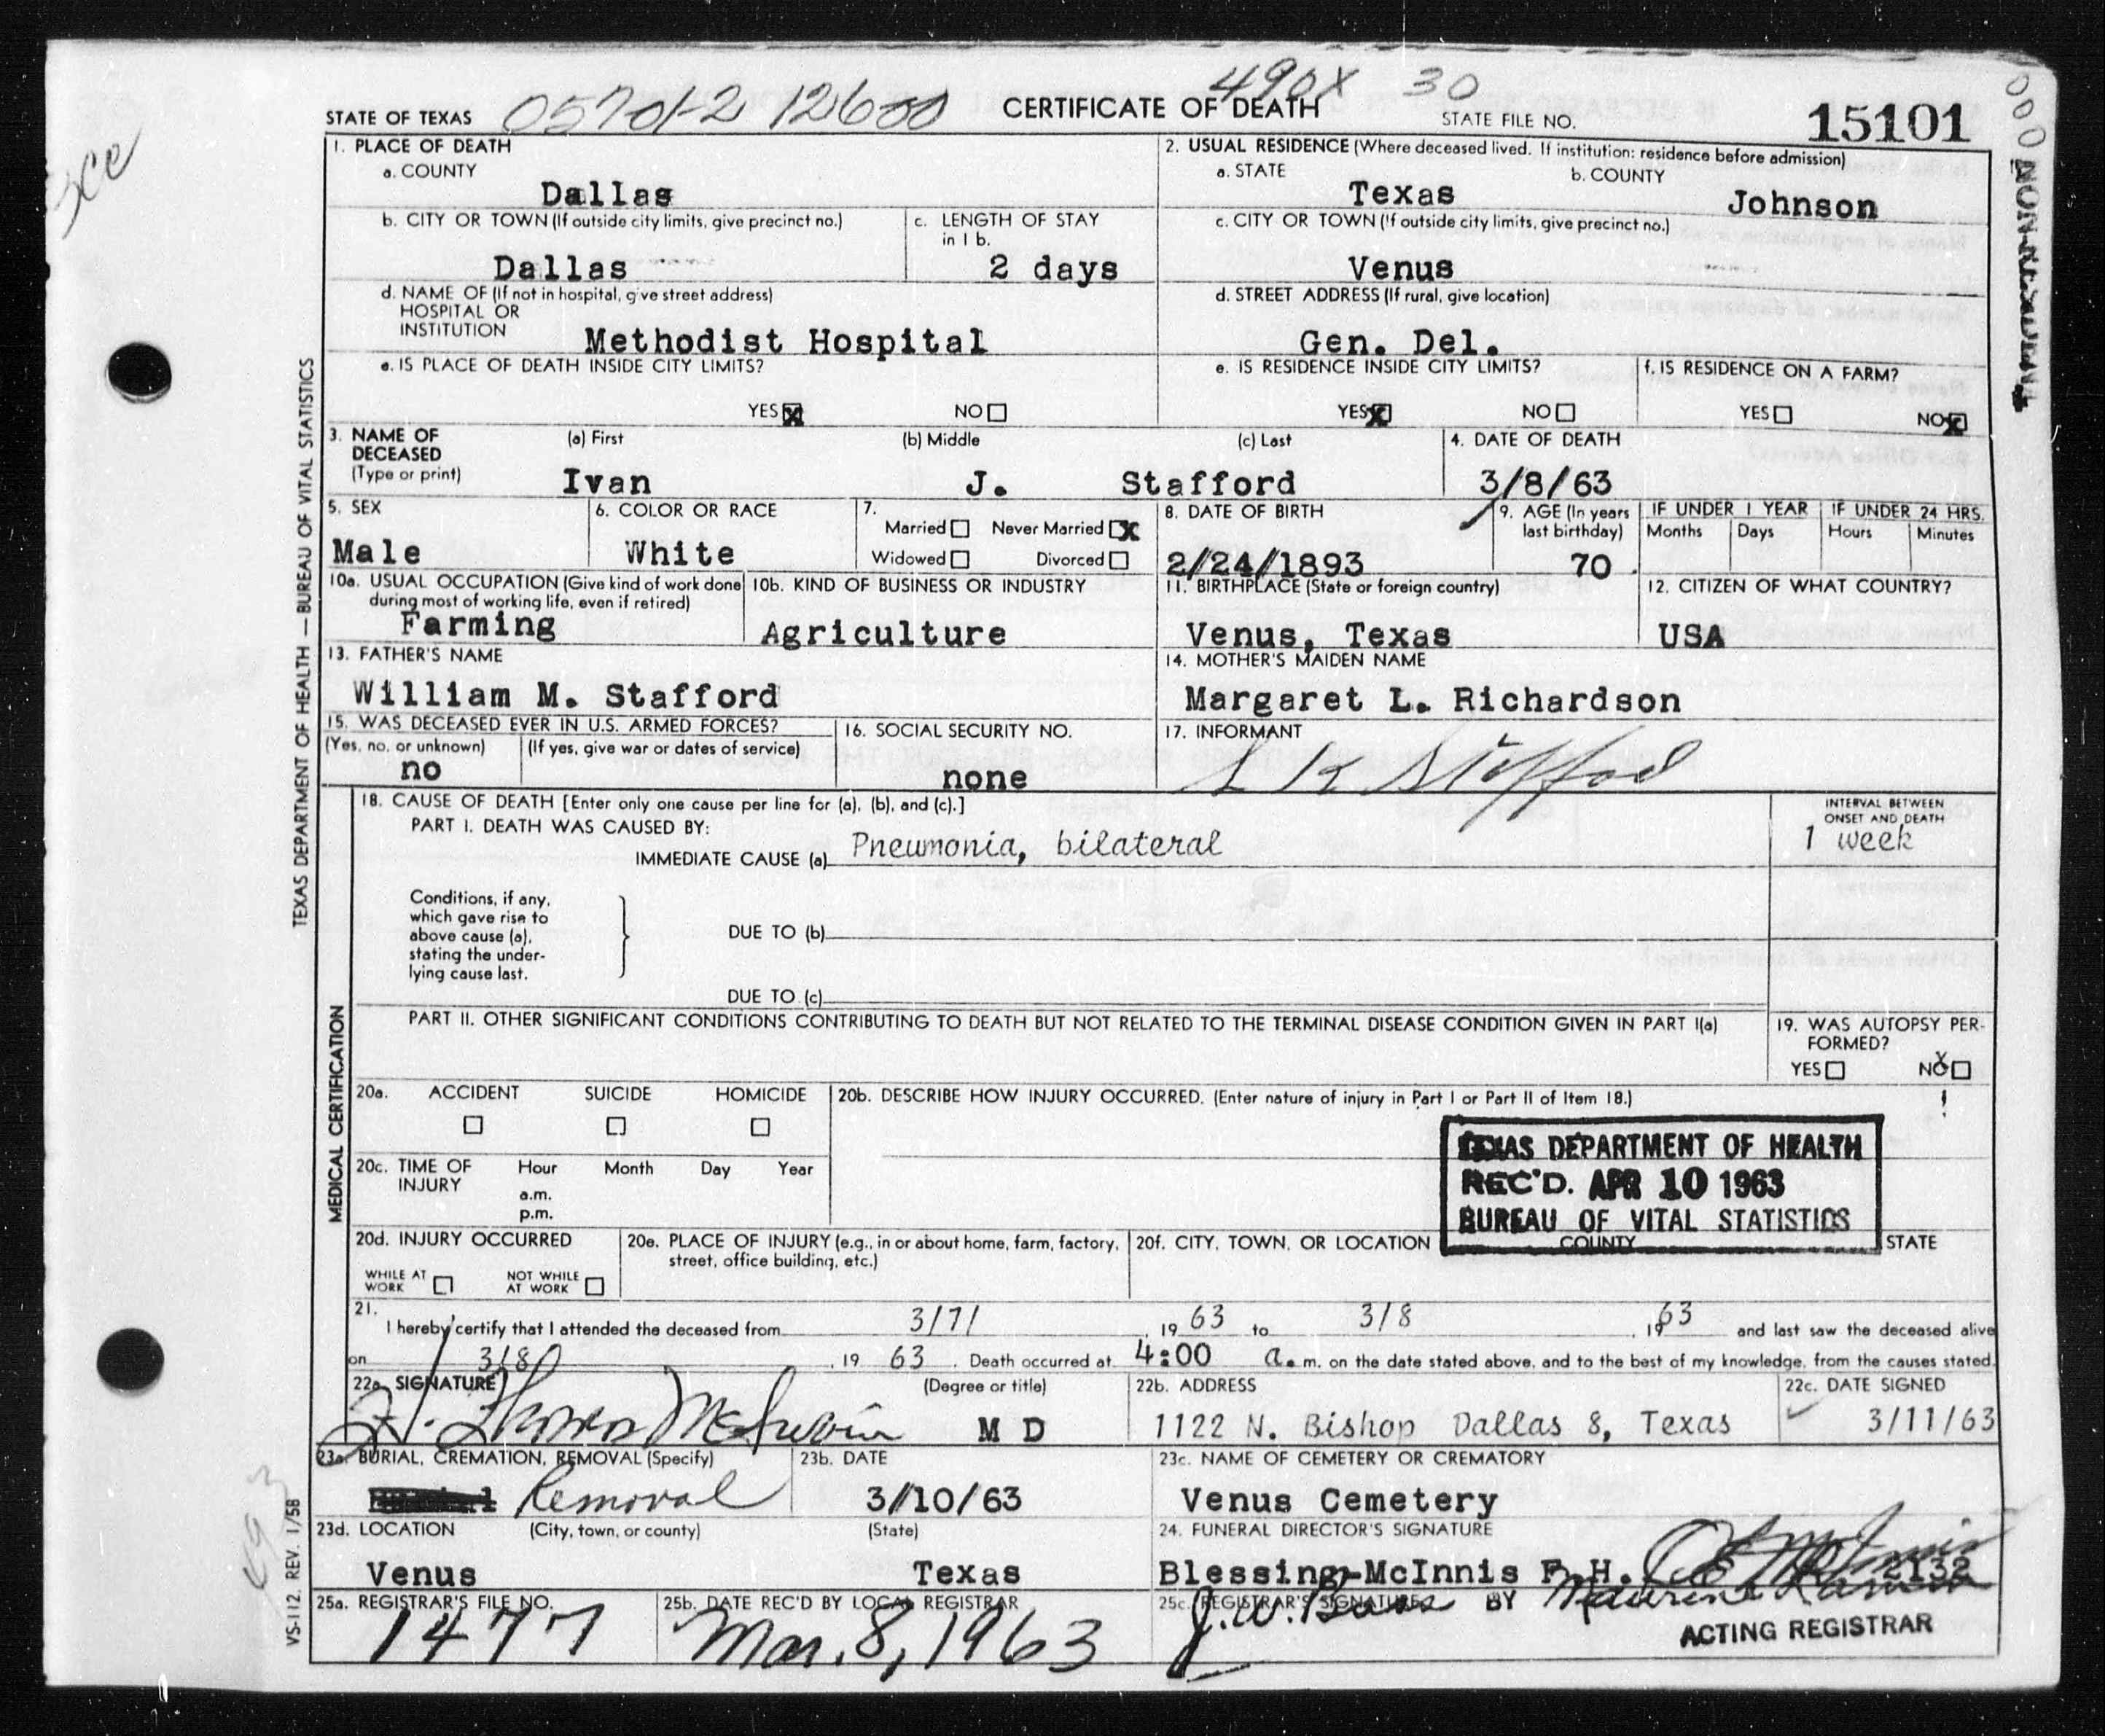 490X 30
STATE OF TEXAS
CERTIFICATE OF DEATH
STATE FILE NO. 15101
1. PLACE OF DEATH
a. COUNTY
Dallas
b. CITY OR TOWN (If outside city limits, give precinct no.)
Dallas
c. LENGTH OF STAY in 1 b.
2 days
d. NAME OF (If not in hospital, give street address)
HOSPITAL OR
INSTITUTION
Methodist Hospital
e. IS PLACE OF DEATH INSIDE CITY LIMITS?
YES X NO
2. USUAL RESIDENCE (Where deceased lived. If institution: residence before admission)
a. STATE
Texas
b. COUNTY
Johnson
c. CITY OR TOWN (If outside city limits, give precinct no.)
Venus
d. STREET ADDRESS (If rural, give location)
Gen. Del.
e. IS RESIDENCE INSIDE CITY LIMITS?
YES X NO
f. IS RESIDENCE ON A FARM?
YES NO X
3. NAME OF
DECEASED
(Type or print)
(a) First (b) Middle (c) Last
Ivan J. Stafford
4. DATE OF DEATH
3/8/63
5. SEX
Male
6. COLOR OR RACE
White
7.
Married Never Married X
Widowed Divorced
8. DATE OF BIRTH
2/24/1893
9. AGE (In years
last birthday)
70
IF UNDER 1 YEAR
Months Days
IF UNDER 24 HRS.
Hours Minutes
10a. USUAL OCCUPATION (Give kind of work done
during most of working life, even if retired)
Farming
10b. KIND OF BUSINESS OR INDUSTRY
Agriculture
11. BIRTHPLACE (State or foreign country)
Venus, Texas
12. CITIZEN OF WHAT COUNTRY?
USA
13. FATHER'S NAME
William M. Stafford
14. MOTHER'S MAIDEN NAME
Margaret L. Richardson
15. WAS DECEASED EVER IN U.S. ARMED FORCES?
(Yes, no, or unknown) (If yes, give war or dates of service)
no
16. SOCIAL SECURITY NO.
none
17. INFORMANT
L K Stafford
18. CAUSE OF DEATH [Enter only one cause per line for (a), (b), and (c).]
PART I. DEATH WAS CAUSED BY:
IMMEDIATE CAUSE (a) Pneumonia, bilateral
INTERVAL BETWEEN
ONSET AND DEATH
1 week
Conditions, if any,
which gave rise to
above cause (a),
stating the under-
lying cause last.
DUE TO (b)
DUE TO (c)
PART II. OTHER SIGNIFICANT CONDITIONS CONTRIBUTING TO DEATH BUT NOT RELATED TO THE TERMINAL DISEASE CONDITION GIVEN IN PART I(a)
19. WAS AUTOPSY PER-
FORMED?
YES NO X
20a. ACCIDENT SUICIDE HOMICIDE
20b. DESCRIBE HOW INJURY OCCURRED. (Enter nature of injury in Part I or Part II of Item 18.)
20c. TIME OF
INJURY
Hour Month Day Year
a.m.
p.m.
TEXAS DEPARTMENT OF HEALTH
REC'D. APR 10 1963
BUREAU OF VITAL STATISTICS
20d. INJURY OCCURRED
WHILE AT
WORK
NOT WHILE
AT WORK
20e. PLACE OF INJURY (e.g., in or about home, farm, factory,
street, office building, etc.)
20f. CITY, TOWN, OR LOCATION COUNTY STATE
21.
I hereby certify that I attended the deceased from 3/7/, 1963 to 3/8, 1963 and last saw the deceased alive
on 3/8, 19 63. Death occurred at 4:00 a.m. on the date stated above, and to the best of my knowledge, from the causes stated.
22a. SIGNATURE (Degree or title)
M D
22b. ADDRESS
1122 N. Bishop Dallas 8, Texas
22c. DATE SIGNED
3/11/63
23a. BURIAL, CREMATION, REMOVAL (Specify)
Removal
23b. DATE
3/10/63
23c. NAME OF CEMETERY OR CREMATORY
Venus Cemetery
23d. LOCATION (City, town, or county) (State)
Venus Texas
24. FUNERAL DIRECTOR'S SIGNATURE
Blessing-McInnis F.H. 2132
25a. REGISTRAR'S FILE NO.
1477
25b. DATE REC'D BY LOCAL REGISTRAR
Mar. 8, 1963
25c. REGISTRAR'S SIGNATURE
J.W. Bass BY
ACTING REGISTRAR
TEXAS DEPARTMENT OF HEALTH — BUREAU OF VITAL STATISTICS
MEDICAL CERTIFICATION
VS-112. REV. 1/58
000 NON-RESIDENT